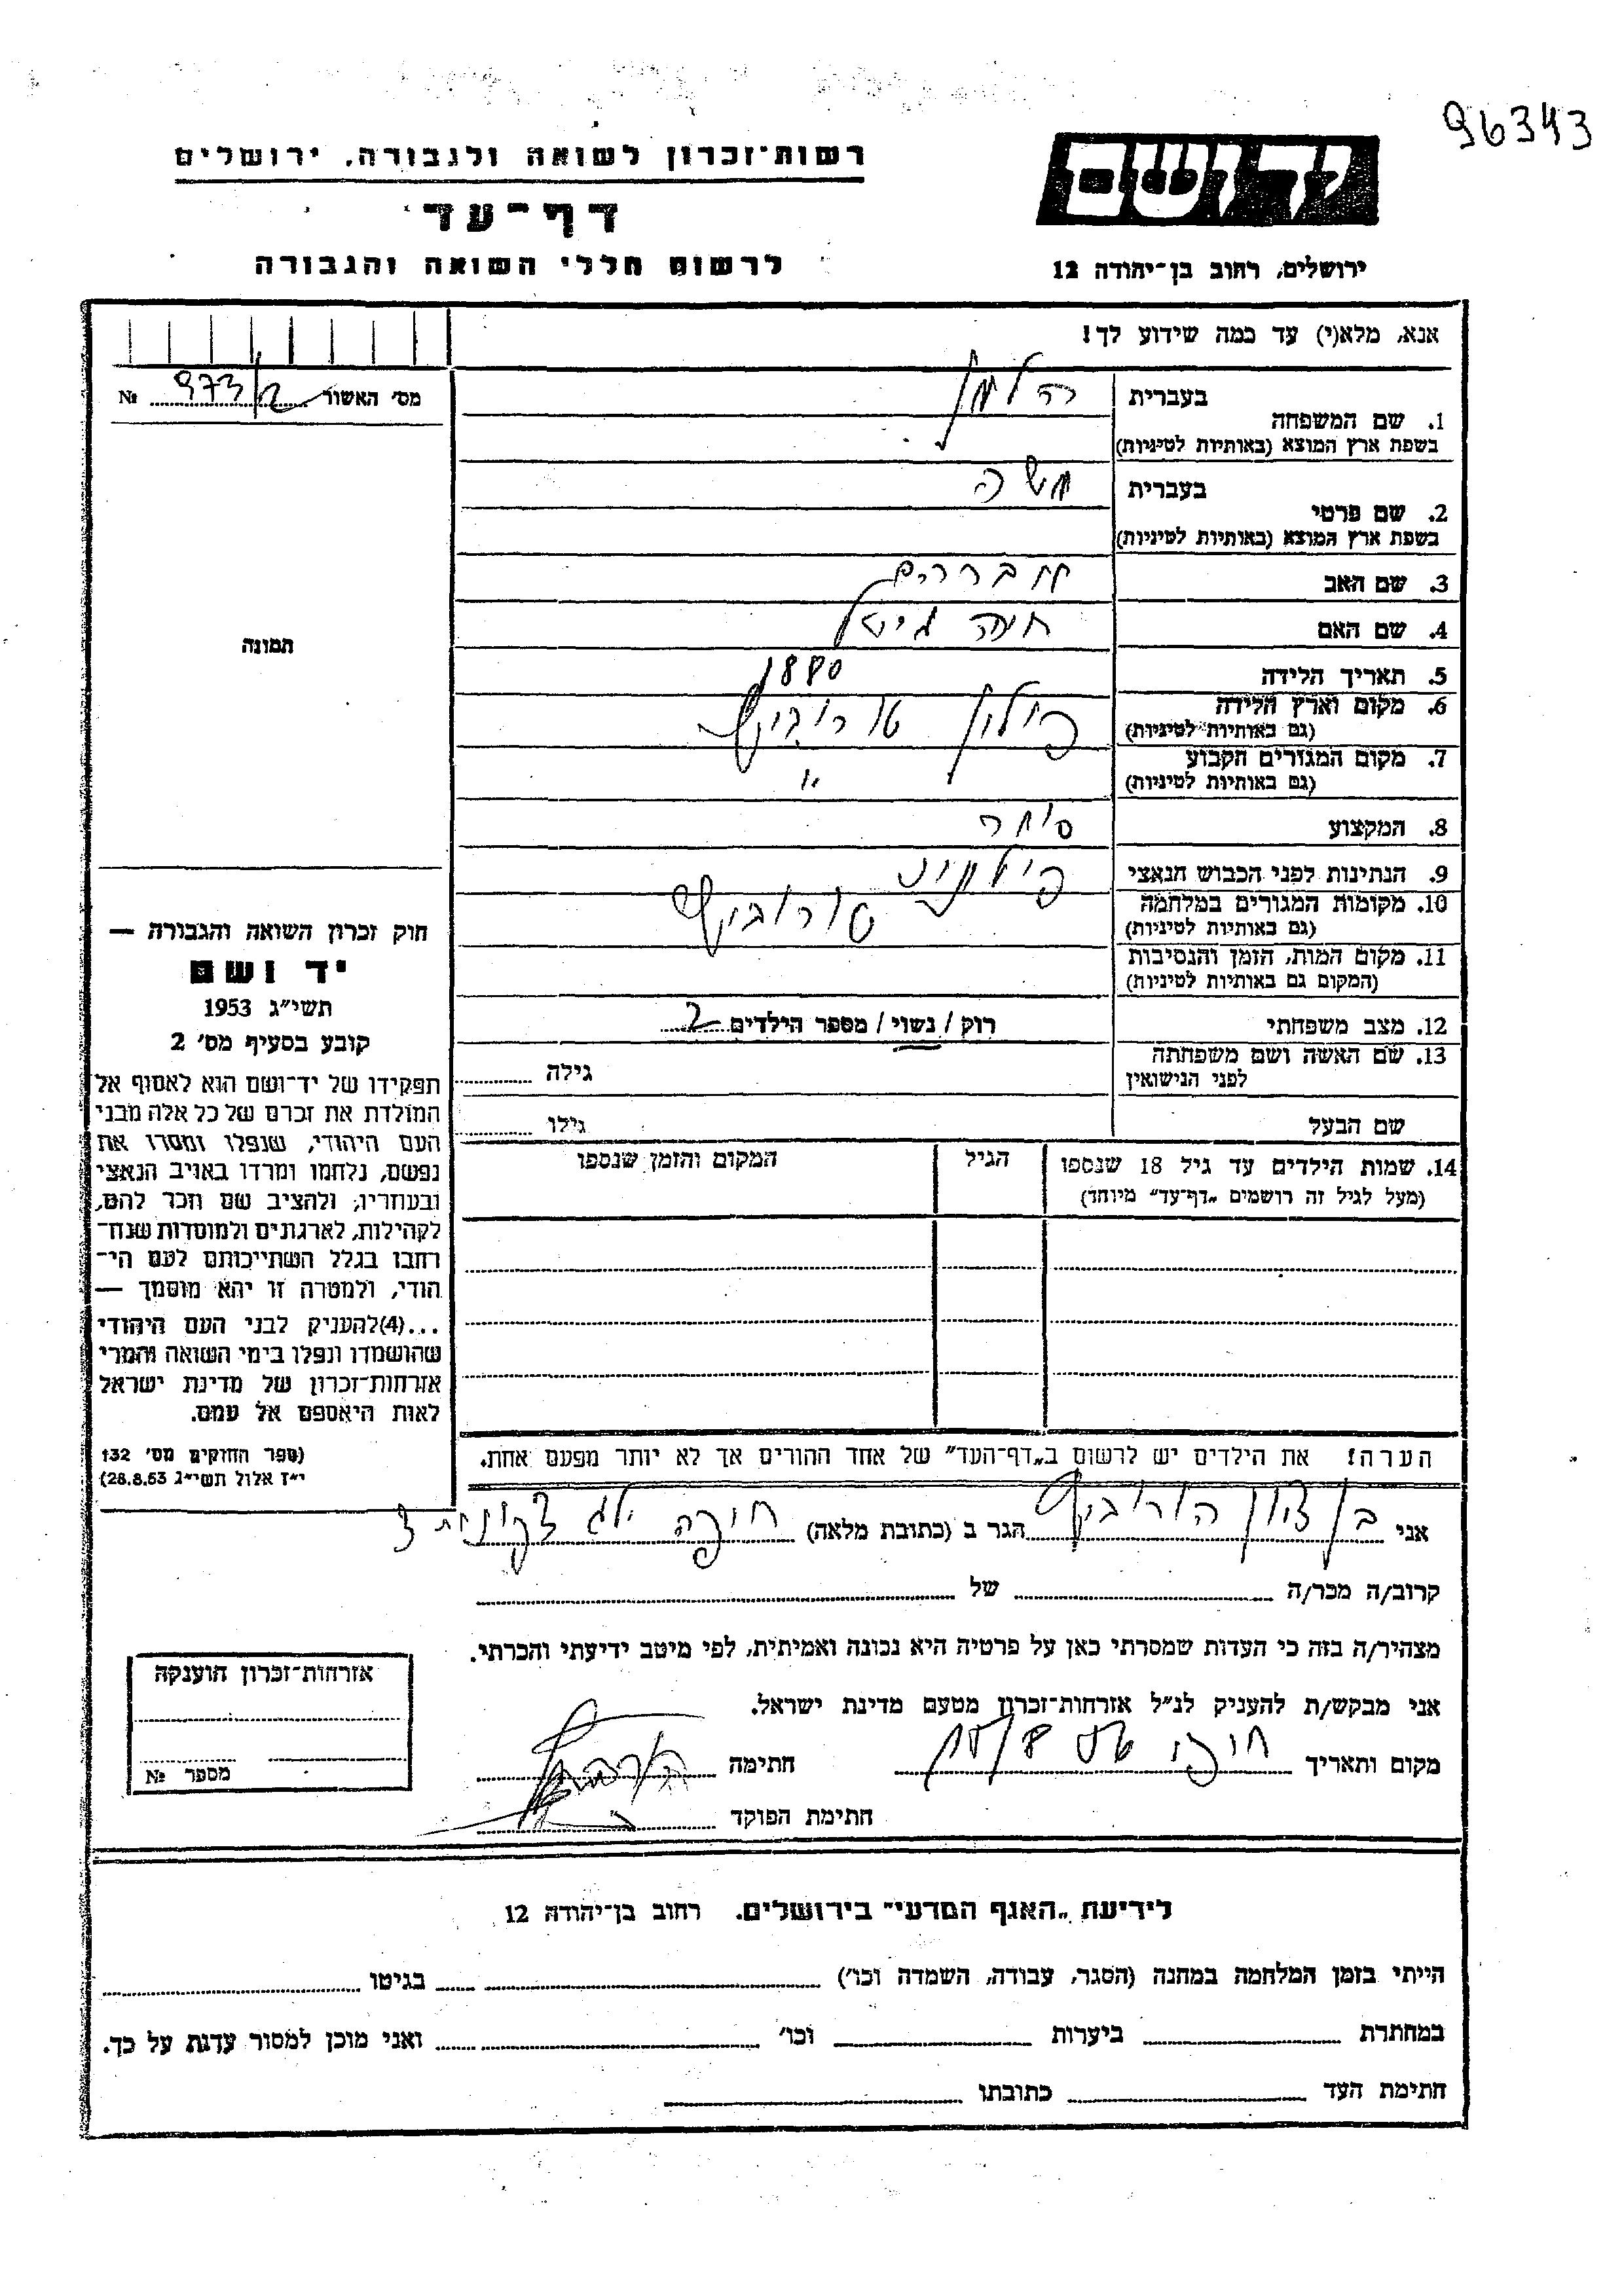 96343
רשות־זכרון לשואה ולגבורה, ירושלים
יד ושם
דף־עד
לרשום חללי השואה והגבורה
ירושלים, רחוב בן־יהודה 12
אנא, מלא(י) עד כמה שידוע לך!
מס׳ האשור № 973/
1. שם המשפחה
בעברית
בשפת ארץ המוצא (באותיות לטיניות)
2. שם פרטי
בעברית משה
בשפת ארץ המוצא (באותיות לטיניות)
3. שם האב אברהם
4. שם האם חנה
תמונה
5. תאריך הלידה 1880
6. מקום וארץ הלידה פולין
(גם באותיות לטיניות)
7. מקום המגורים הקבוע
(גם באותיות לטיניות)
8. המקצוע סוחר
9. הנתינות לפני הכבוש הנאצי פולנית
10. מקומות המגורים במלחמה
(גם באותיות לטיניות)
11. מקום המות, הזמן והנסיבות
(המקום גם באותיות לטיניות)
12. מצב משפחתי רוק / נשוי / מספר הילדים 2
13. שם האשה ושם משפחתה
לפני הנישואין
גילה
שם הבעל גילו
14. שמות הילדים עד גיל 18 שנספו
(מעל לגיל זה רושמים „דף־עד״ מיוחד)
הגיל
המקום והזמן שנספו
חוק זכרון השואה והגבורה —
יד ושם
תשי״ג 1953
קובע בסעיף מס׳ 2
תפקידו של יד־ושם הוא לאסוף אל
המולדת את זכרם של כל אלה מבני
העם היהודי, שנפלו ומסרו את
נפשם, נלחמו ומרדו באויב הנאצי
ובעוזריו, ולהציב שם וזכר להם,
לקהילות, לארגונים ולמוסדות שנח־
רבו בגלל השתייכותם לעם הי־
הודי, ולמטרה זו יהא מוסמך —
...(4) להעניק לבני העם היהודי
שהושמדו ונפלו בימי השואה והמרי
אזרחות־זכרון של מדינת ישראל
לאות היאספם אל עמם.
(ספר החוקים מס׳ 132
י״ז אלול תשי״ג 28.8.53)
הערה! את הילדים יש לרשום ב„דף־העד״ של אחד ההורים אך לא יותר מפעם אחת.
אני בן ציון הורוביץ הגר ב (כתובת מלאה) חיפה
קרוב/ה מכר/ה של
מצהיר/ה בזה כי העדות שמסרתי כאן על פרטיה היא נכונה ואמיתית, לפי מיטב ידיעתי והכרתי.
אני מבקש/ת להעניק לנ״ל אזרחות־זכרון מטעם מדינת ישראל.
מקום ותאריך חיפה חתימה
חתימת הפוקד
אזרחות־זכרון הוענקה
מספר №
לידיעת „האגף המדעי״ בירושלים. רחוב בן־יהודה 12
הייתי בזמן המלחמה במחנה (הסגר, עבודה, השמדה וכו׳) בגיטו
במחתרת ביערות וכו׳ ואני מוכן למסור עדות על כך.
חתימת העד כתובתו